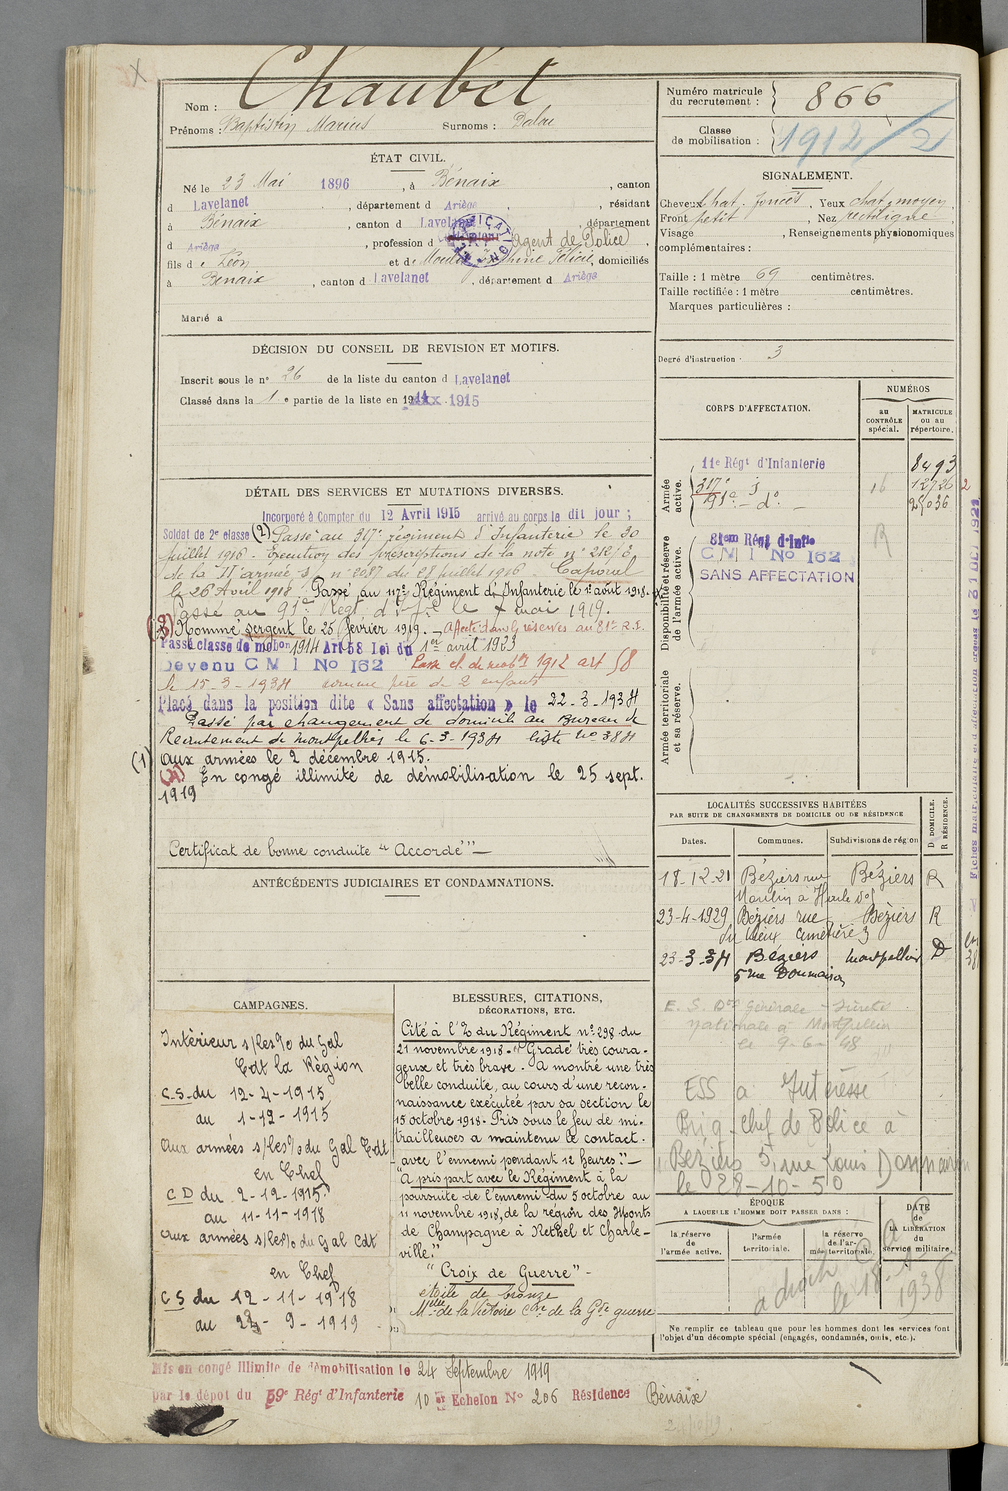 Chaubet
Nom :
Prénoms : Baptistin Marius Surnoms :
Numéro matricule du recrutement : 866
Classe de mobilisation : 1912/2
ÉTAT CIVIL.
Né le 23 Mai 1896, à Bénaix, canton
d Lavelanet, département d Ariège, résidant
à Bénaix, canton d Lavelanet département
d Ariège, profession d agent de Police,
fils d e Léon et de Félicie, domiciliés
à Bénaix, canton d Lavelanet, département d Ariège
Marié à
SIGNALEMENT.
Cheveux chat. foncés, Yeux chat. moyen,
Front petit, Nez rectiligne
Visage , Renseignements physionomiques
complémentaires :
Taille : 1 mètre 69 centimètres.
Taille rectifiée : 1 mètre centimètres.
Marques particulières :
Degré d'instruction : 3
DÉCISION DU CONSEIL DE REVISION ET MOTIFS.
Inscrit sous le n° 26 de la liste du canton d Lavelanet
Classé dans la 1e partie de la liste en 1915
DÉTAIL DES SERVICES ET MUTATIONS DIVERSES.
Incorporé à Compter du 12 Avril 1915 arrivé au corps le dit jour ;
Soldat de 2e classe (2) Passé au 317e régiment d'Infanterie le 30
juillet 1916. Exécution des prescriptions de la note n° 212/
de la IIe armée n° 2087 du 28 juillet 1916. Caporal
le 26 Avril 1918. Passé au 117e Régiment d'Infanterie le 1er août 1918.
Passé au 91e Régt d'Infie le 7 mai 1919.
(3) Nommé sergent le 25 février 1919. Affecté dans les réserves au 81e R.I.
Passé classe de mobon 1914 Art 58 Loi du 1er avril 1923
Devenu CMI No 162 Passé cl. de mobon 1912 art 58
le 15-3-1934 comme père de 2 enfants
Placé dans la position dite « Sans affectation » le 22-3-1934
Passé par changement de domicile au Bureau de
Recrutement de Montpellier le 6-3-1934 liste No 384
(1) Aux armées le 2 décembre 1915.
(4) En congé illimité de démobilisation le 25 sept.
1919
Certificat de bonne conduite "Accordé"
ANTÉCÉDENTS JUDICIAIRES ET CONDAMNATIONS.
CORPS D'AFFECTATION.
NUMÉROS
au CONTRÔLE spécial.
MATRICULE ou au répertoire.
Armée active.
11e Régt d'Infanterie 8493
317e do 16
91e do 25036
Disponibilité et réserve de l'armée active.
81em Régt d'Infie
CMI No 162
SANS AFFECTATION
Armée territoriale et sa réserve.
LOCALITÉS SUCCESSIVES HABITÉES
PAR SUITE DE CHANGEMENTS DE DOMICILE OU DE RÉSIDENCE
Dates. Communes. Subdivisions de région
D DOMICILE. R RÉSIDENCE.
18-12-21 Béziers rue Béziers R
Moulin à Huile
23-4-1929 Béziers rue Béziers R
du Vieux Cimetière 3
23-3-34 Béziers Montpellier D
5 rue Doumairon
E. S. Don Générale Sûreté
nationale à Montpellier
le 9-6-48
ESS a Intéressé
Brig. chef de Police à
Béziers 5, rue Louis Domairon
le 28-10-50
CAMPAGNES.
Intérieur s/les/o du Gal
Cdt la Région
C.S. du 12-4-1915
au 1-12-1915
Aux armées s/les/o du Gal Cdt
en Chef
C D du 2-12-1915
au 11-11-1918
Aux armées s/les/o du Gal Cdt
en Chef
C S du 12-11-1918
au 24-9-1919
BLESSURES, CITATIONS, DÉCORATIONS, ETC.
Cité à l'O du Régiment n° 298 du
21 novembre 1918. "Gradé très coura-
geux et très brave. A montré une très
belle conduite, au cours d'une recon-
naissance exécutée par sa section le
15 octobre 1918. Pris sous le feu de mi-
trailleuses a maintenu le contact
avec l'ennemi pendant 12 heures."
"A pris part avec le Régiment à la
poursuite de l'ennemi du 5 octobre au
11 novembre 1918, de la région des Monts
de Champagne à Rethel et Charle-
ville."
"Croix de Guerre"
étoile de bronze
Mlle de la Victoire Cve de la Gde guerre
ÉPOQUE
A LAQUELLE L'HOMME DOIT PASSER DANS :
la réserve de l'armée active.
l'armée territoriale.
la réserve de l'armée territoriale.
DATE de LA LIBÉRATION du service militaire.
à droit
le 18 1938
Ne remplir ce tableau que pour les hommes dont les services font
l'objet d'un décompte spécial (engagés, condamnés, omis, etc.).
Mis en congé illimité de démobilisation le 24 Septembre 1919
par le dépôt du 59e Régt d'Infanterie 10e Echelon No 206 Résidence Bénaix